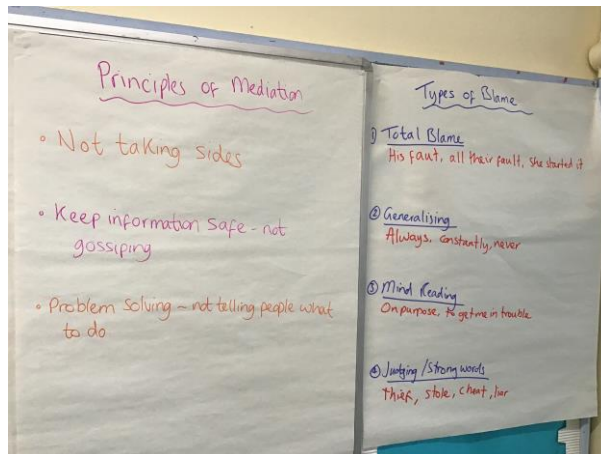 Principles of Mediation
• Not taking sides
• Keep information safe - not
gossiping
• Problem Solving - not telling people what
to do
Types of Blame
① Total Blame
His faut, all their fault, she started it
② Generalising
Always, constantly, never
③ Mind Reading
On purpose, to get me in trouble
④ Judging / Strong words
thief, stole, cheat, liar